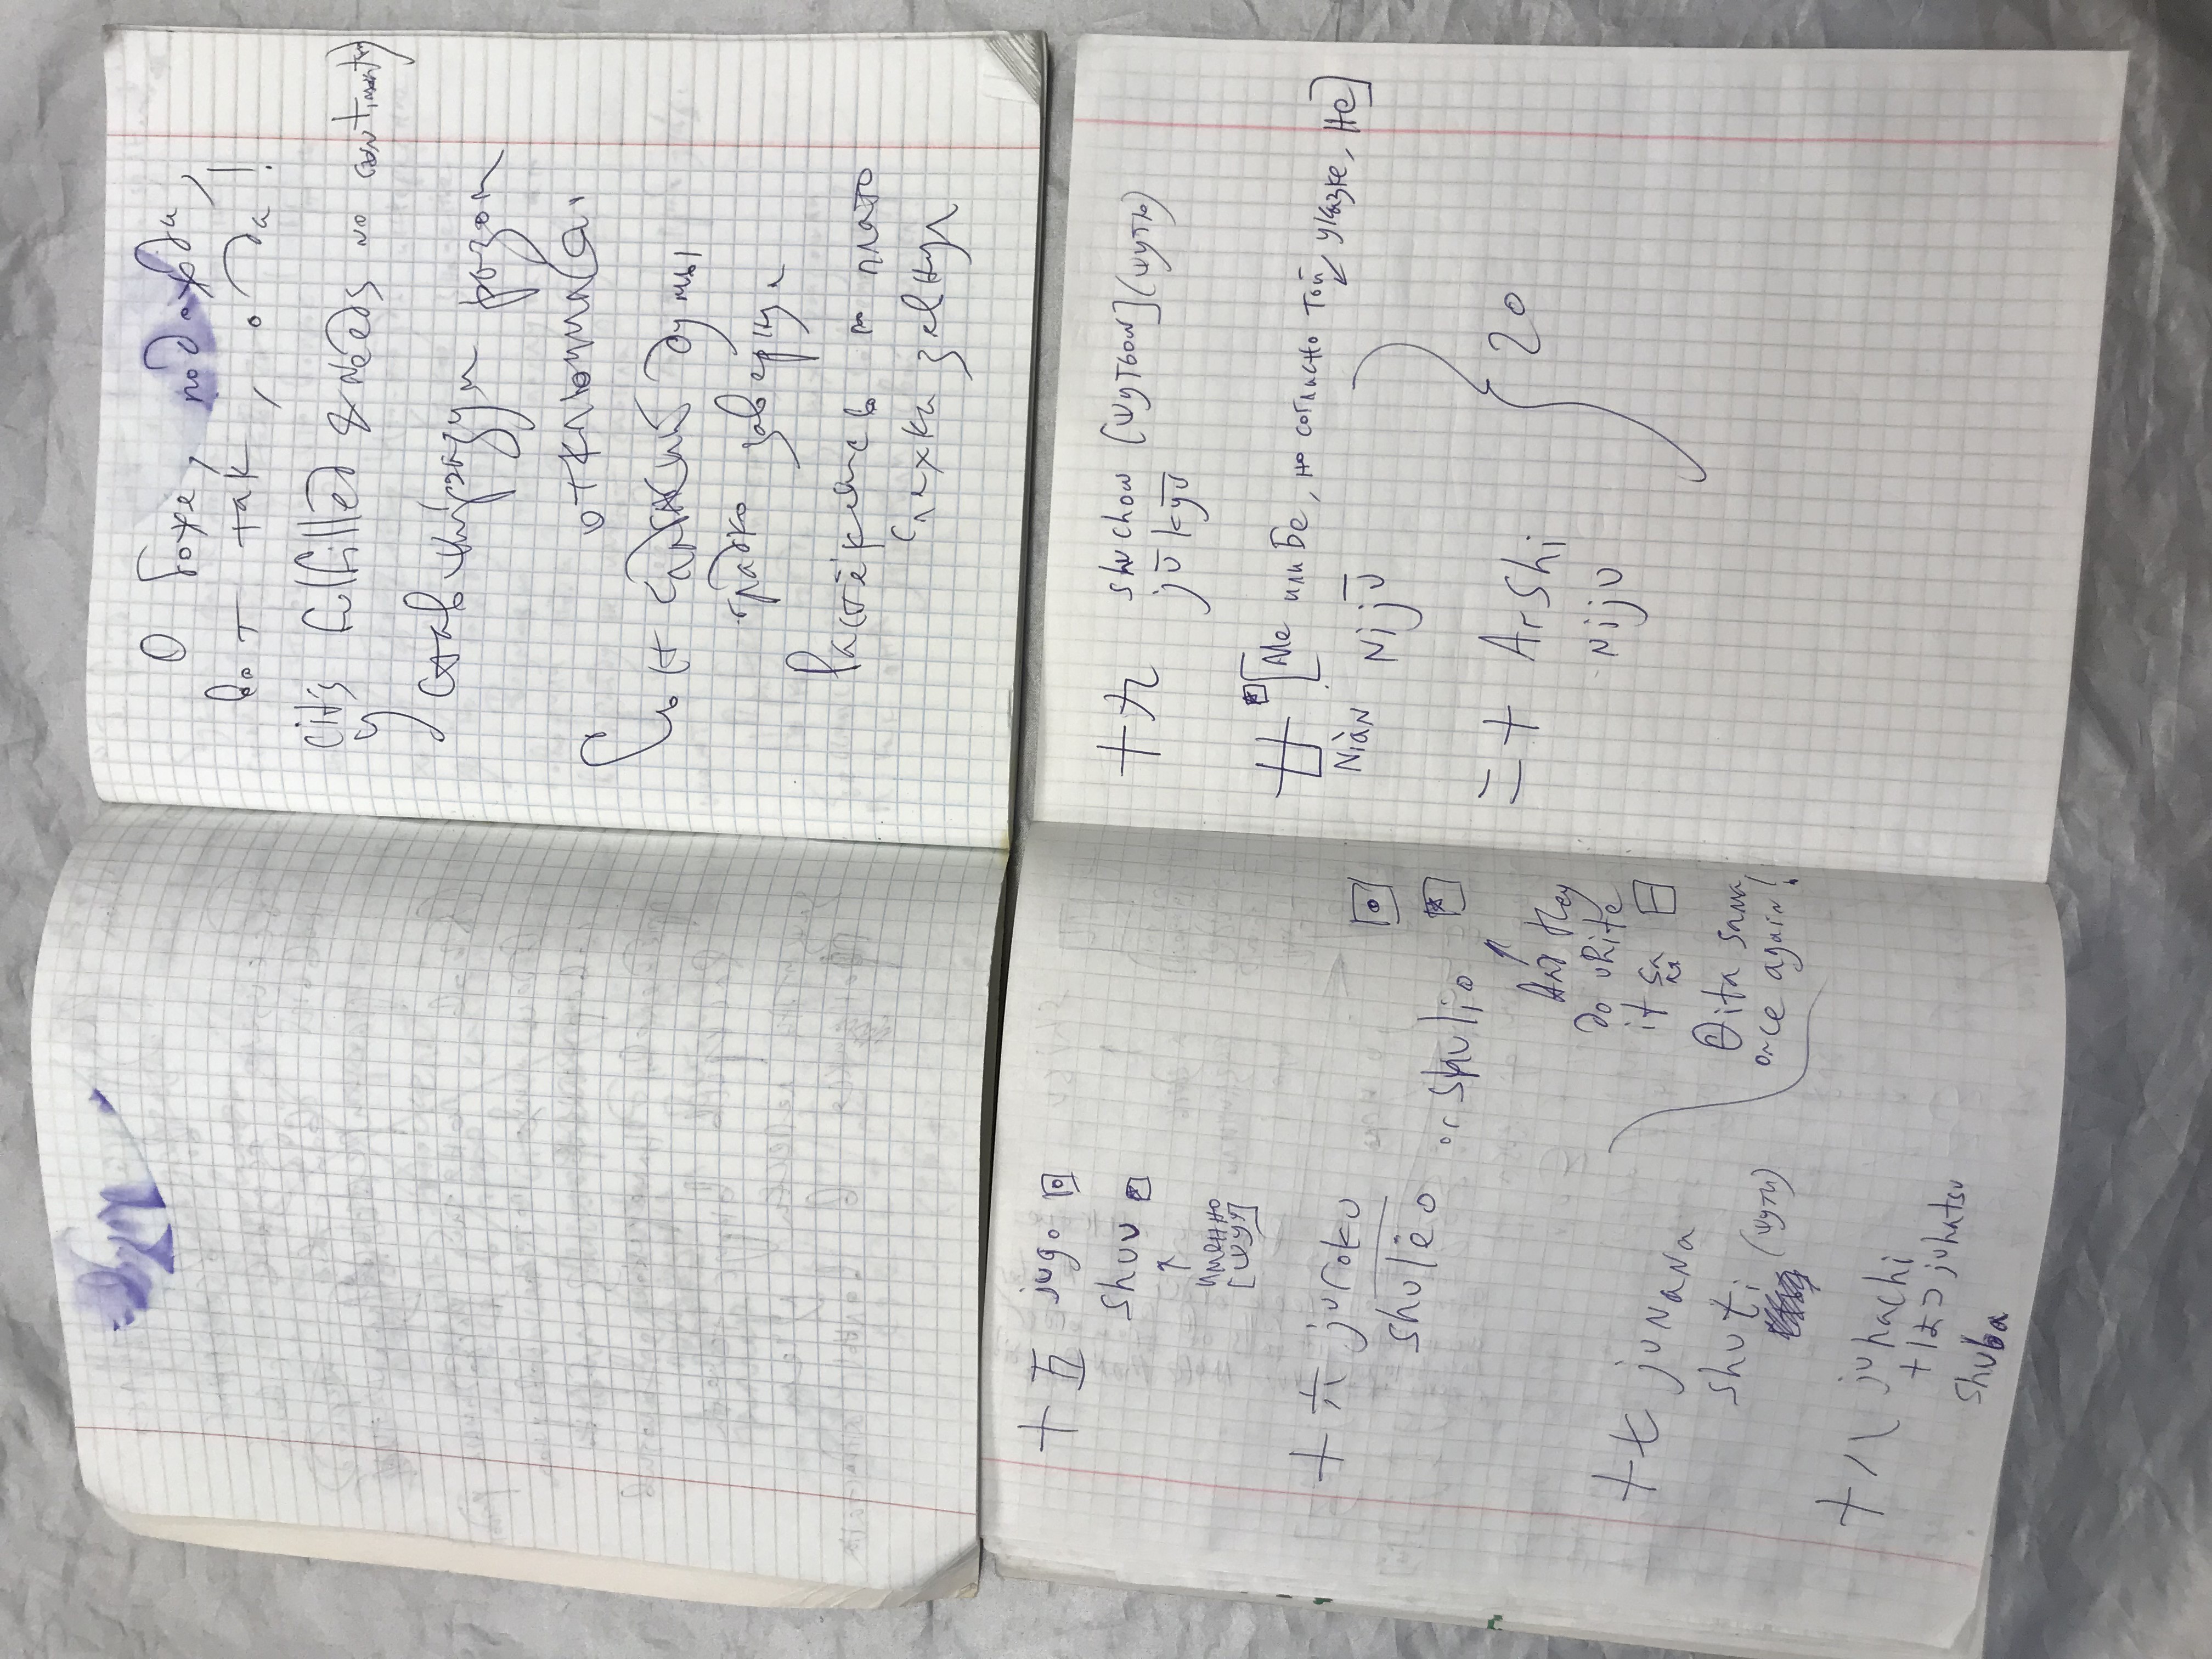 О боже, подожди,
вот так, о да!
(it's fulfilled & needs no
Уставший разум разом
отключился.
Сюжет сладкий думы
гладко завернул
Растёкшись по плато
сляжка зевнул
十五 jugo 回
shuu
↑
именно
[шуу]
十六 juroku
shulëo
or shulio
↑
And they
do write
it so 日
Θita sama,
once again!
十七 junana
shuti
(шути)
十八 juhachi
十はつ juhatsu
shuba
十九 shuchow [шутьоw] (шутю)
jūkyū
廿 [Ме или Бе, но согласно той указке, Не]
Niàn Nijū
二十 Arshi
Niju
20